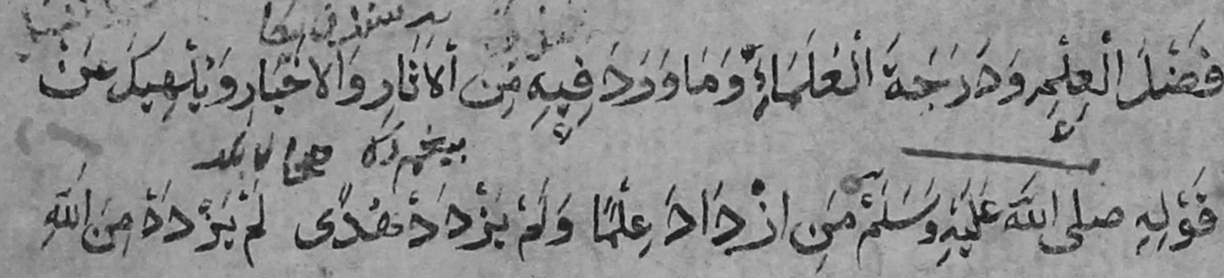 فَضْلَ الْعِلْمِ وَدَرَجَةَ الْعُلَمَاءِ وَمَا وَرَدَ فِيهِ مِنَ الْآثَارِ وَالْاَخْبَارِ وَيُلْهِيكَ عَنْ
قَوْلِهِ صلى اللهُ عَلَيْهِ وَسَلَّمَ مَنِ ازْدَادَ عِلْمًا وَلَمْ يَزْدَدْ هُدًى لَمْ يَزْدَدْ مِنَ اللهِ